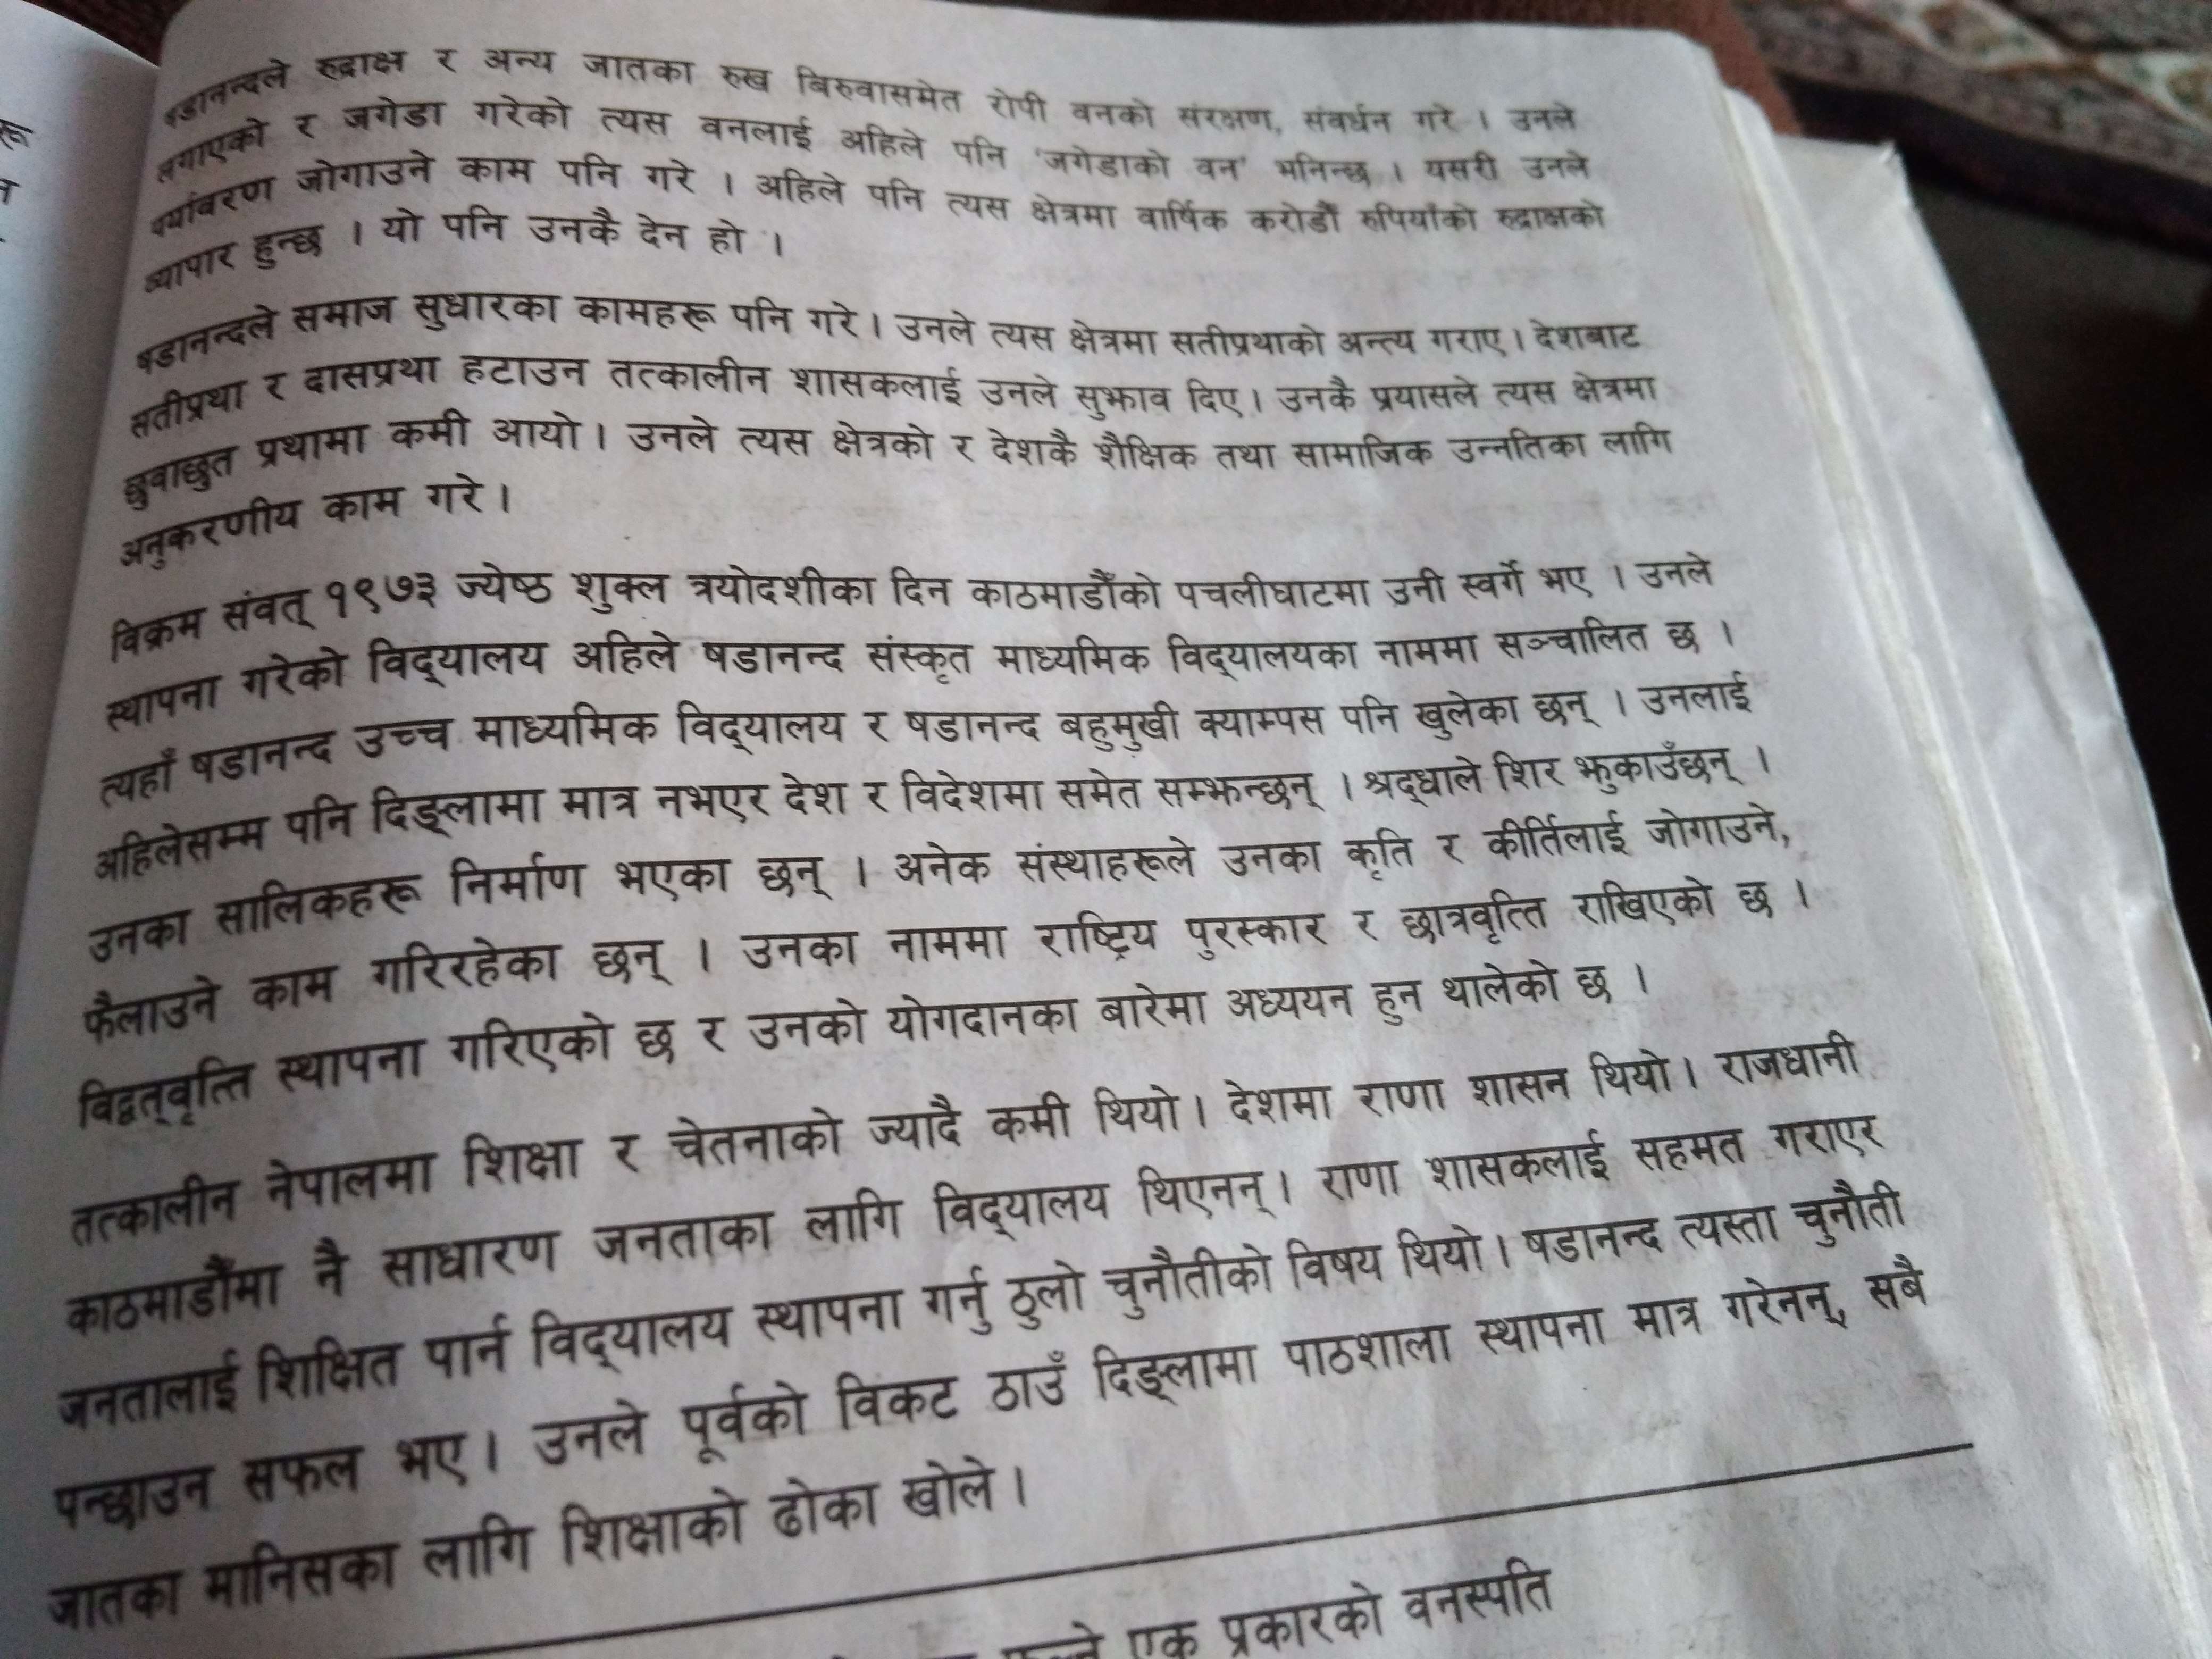 षडानन्दले रुद्राक्ष र अन्य जातका रुख बिरुवासमेत रोपी वनको संरक्षण, संवर्धन गरे । उनले
लगाएको र जगेडा गरेको त्यस वनलाई अहिले पनि 'जगेडाको वन' भनिन्छ । यसरी उनले
पर्यावरण जोगाउने काम पनि गरे । अहिले पनि त्यस क्षेत्रमा वार्षिक करोडौँ रुपियाँको रुद्राक्षको
व्यापार हुन्छ । यो पनि उनकै देन हो ।
षडानन्दले समाज सुधारका कामहरू पनि गरे । उनले त्यस क्षेत्रमा सतीप्रथाको अन्त्य गराए । देशबाट
सतीप्रथा र दासप्रथा हटाउन तत्कालीन शासकलाई उनले सुझाव दिए । उनकै प्रयासले त्यस क्षेत्रमा
छुवाछुत प्रथामा कमी आयो । उनले त्यस क्षेत्रको र देशकै शैक्षिक तथा सामाजिक उन्नतिका लागि
अनुकरणीय काम गरे ।
विक्रम संवत् १९७३ ज्येष्ठ शुक्ल त्रयोदशीका दिन काठमाडौँको पचलीघाटमा उनी स्वर्गे भए । उनले
स्थापना गरेको विद्‌यालय अहिले षडानन्द संस्कृत माध्यमिक विद्‌यालयका नाममा सञ्चालित छ ।
त्यहाँ षडानन्द उच्च माध्यमिक विद्‌यालय र षडानन्द बहुमुखी क्याम्पस पनि खुलेका छन् । उनलाई
अहिलेसम्म पनि दिङ्लामा मात्र नभएर देश र विदेशमा समेत सम्झन्छन् । श्रद्‌धाले शिर झुकाउँछन् ।
उनका सालिकहरू निर्माण भएका छन् । अनेक संस्थाहरूले उनका कृति र कीर्तिलाई जोगाउने,
फैलाउने काम गरिरहेका छन् । उनका नाममा राष्ट्रिय पुरस्कार र छात्रवृत्ति राखिएको छ ।
विद्वत्‌वृत्ति स्थापना गरिएको छ र उनको योगदानका बारेमा अध्ययन हुन थालेको छ ।
तत्कालीन नेपालमा शिक्षा र चेतनाको ज्यादै कमी थियो । देशमा राणा शासन थियो । राजधानी
काठमाडौँमा नै साधारण जनताका लागि विद्‌यालय थिएनन् । राणा शासकलाई सहमत गराएर
जनतालाई शिक्षित पार्न विद्‌यालय स्थापना गर्नु ठुलो चुनौतीको विषय थियो । षडानन्द त्यस्ता चुनौती
पन्छाउन सफल भए । उनले पूर्वको विकट ठाउँ दिङ्लामा पाठशाला स्थापना मात्र गरेनन्, सबै
जातका मानिसका लागि शिक्षाको ढोका खोले ।
एक प्रकारको वनस्पति